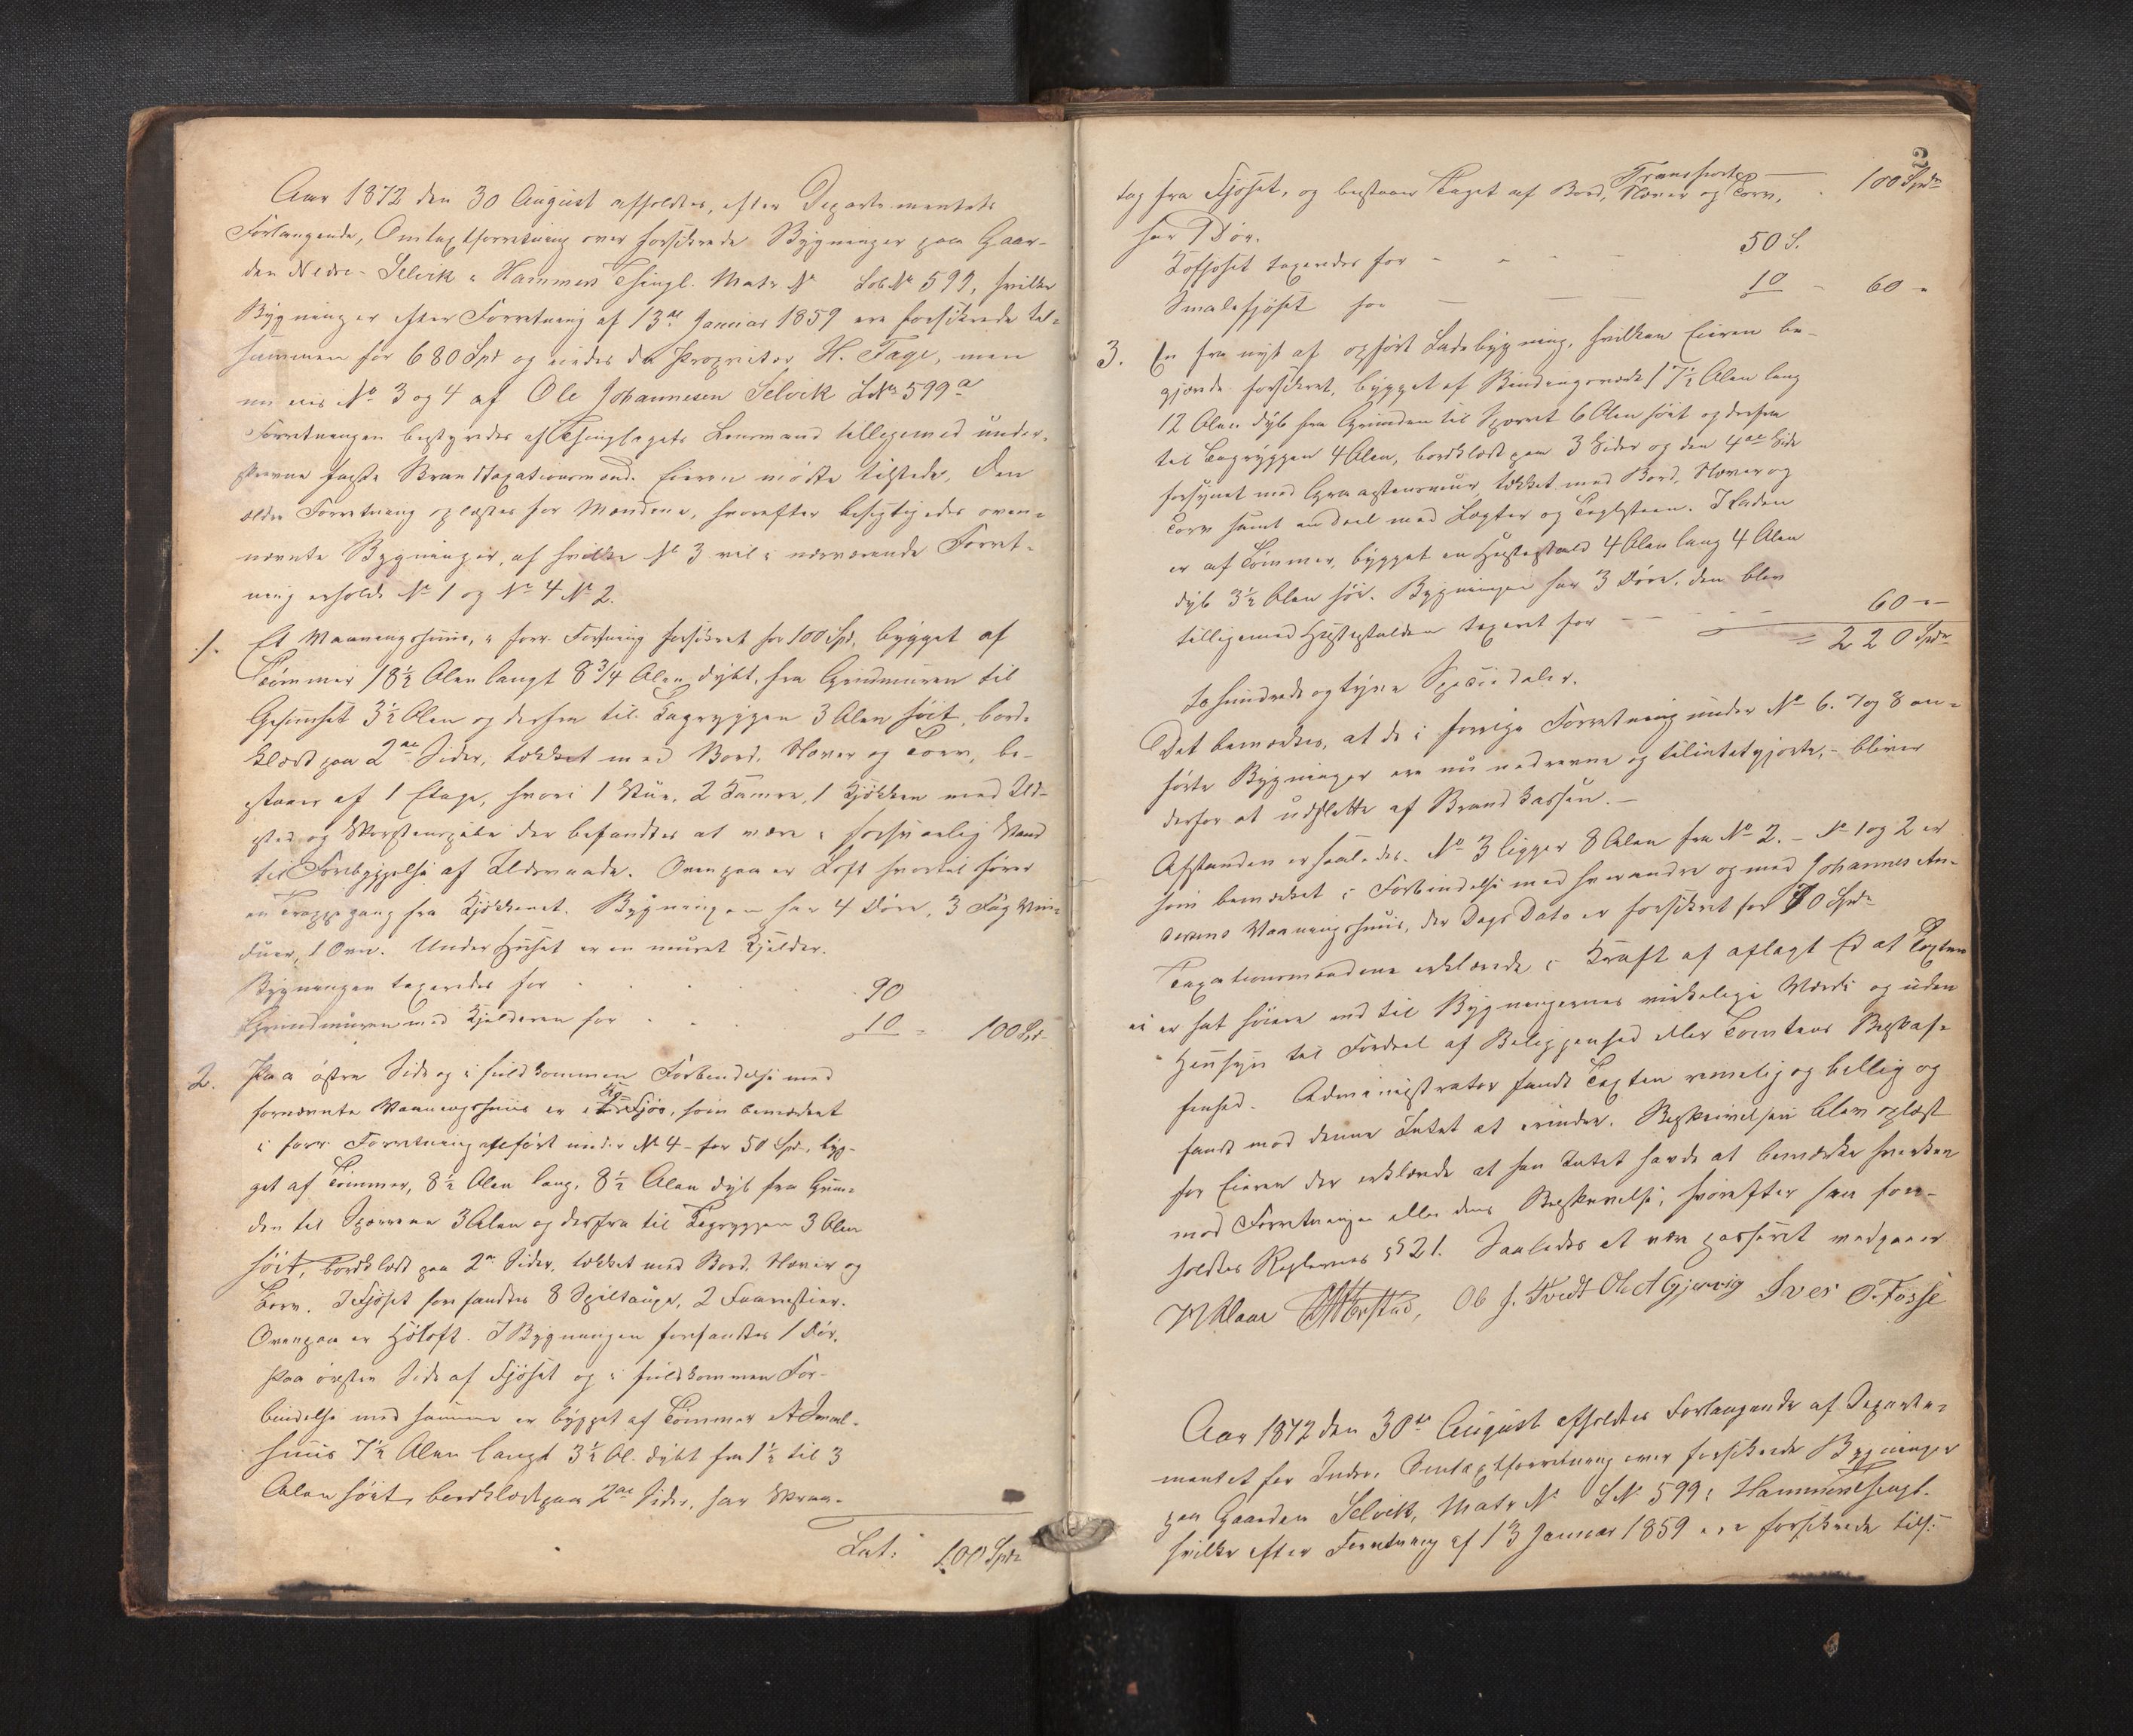 Aar 1872 den 30 August afholdtes, efter Departementets
Forlangende, Omtaxtforretning over forsikrede Bygninger paa Gaar-
den Nedre-Selvik i Hammers Thingl. Matr. No Løb No 599, hvilke
Bygninger efter Forretning af 13de Januar 1859 ere forsikrede til-
sammen for 680 Spd og eiedes da Proprietor H. Fage, men
nu eies No 3 og 4 af Ole Johannesen Selvik LNo 599a
Forretningen bestyredes af Thinglagets Lensmand tilligemed under-
skrevne faste Brandtaxationsmænd. Eieren mødte tilstede. Den
ældre Forretning oplæstes for Mændene, hvorefter besigtigedes oven-
nævnte Bygninger, af hvilke No 3 vil i nærværende Forret-
ning erholde No 1 og No 4 No 2.
1. Et Vaaningshuus, i forr. Forretning forsikret for 100 Spd, bygget af
Tømmer 18½ Alen langt 8¾ Alen dybt, fra Grundmuren til
Gesimset 3½ Alen og derfra til Tagryggen 3 Alen høit, bord-
klædt paa 2de Sider, tækket med Bord, Næver og Torv, be-
staaer af 1 Etage, hvori 1 Stue, 2 Kamre, 1 Kjøkken med Ild-
sted og Skorstenspibe der befandtes at være i forsvarlig Stand
til Forebyggelse af Ildsvaade. Ovenpaa er Loft hvortil fører
en Trappegang fra Kjøkkenet. Bygningen har 4 Døre, 3 Fag Vin-
duer, 1 Ovn. Under Huset er en muret Kjelder.
Bygningen taxeredes for 90
Grundmuren med Kjelderen for 10 - 100 Spd
2. Paa østre Side og i fuldkommen Forbindelse med
fornævnte Vaaningshuus er et Fjøs, som bemærket
i forr. Forretning opført under No 4 - for 50 Spd, byg-
get af Tømmer, 8½ Alen lang, 8½ Alen dyb fra Grun-
den til Sperrene 3 Alen og derfra til Tagryggen 3 Alen
høit, bordklædt paa 2de Sider, tækket med Bord, Næver og
Torv. I Fjøset forefandtes 8 Spiltauge, 2 Faarestier.
Ovenpaa er Høloft. I Bygningen forefandtes 1 Dør.
Paa østre Side af Fjøset og i fuldkommen For-
bindelse med samme er bygget af Tømmer et Smal-
huus 7½ Alen langt 3½ Al. dybt fra 1½ til 3
Alen høit, bordklædt paa 2de Sider, har Skraa-
Lat: 100 Spd
2
Transporteres 100 Spd
tag fra Fjøset, og bestaaer Taget af Bord, Næver og Torv,
har 1 Dør.
Kofjøset taxeredes for 50 S.
Smalefjøset for 10 - 60 -
3. En fra nyt af opført Ladebygning, hvilken Eieren be-
gjærede forsikret, bygget af Bindingsværk 17½ Alen lang
12 Alen dyb fra Grunden til Sperret 6 Alen høit og derfra
til Tagryggen 4 Alen, bordklædt paa 3 Sider og den 4de Side
forsynet med Graastensmuur, tækket med Bord, Næver og
Torv samt en deel med Lægter og Taglsteen. I Laden
er af Tømmer bygget en Hestestald 4 Alen lang 4 Alen
dyb 3½ Alen høi. Bygningen har 3 Døre, den blev
tilligemed Hestestalden taxeret for 60 - -
= 220 Spd
To hundrede og tyve Speciedaler.
Det bemærkes, at de i forrige Forretning under No 6. 7 og 8 an-
førte Bygninger ere nu nedrevne og tilintetgjorte, - bliver
derfor at udslette af Brandkassen. -
Afstanden er saaledes. No 3 ligger 8 Alen fra No 2. - No 1 og 2 er
som bemærket i Forbindelse med hverandre og med Johannes An-
dersens Vaaningshuus, der Dags Dato er forsikret for 70 Spd
Taxationsmændene erklærede i Kraft af aflagt Ed at Taxten
ei er sat høiere end til Bygningernes virkelige Værdi og uden
Hensyn til Fordeel af Beliggenhed eller Tomtens Beskaf-
fenhed. Administrator fandt Taxten rimelig og billig og
fandt mod denne Intet at erindre. Beskrivelsen blev oplæst
for Eieren der erklærede at han Intet havde at bemærke hverken
mod Forretningen eller dens Beskrivelse, hvorefter han fore-
holdtes Reglernes §§ 21. Saaledes at være passeret medgaaer
M Klaae Ole J. Tvedt Ole A Gjervig Iver O. Fosse
Aar 1872 den 30te August afholdtes Forlangende af Departe-
mentet for Indre, Omtaxtforretning over forsikrede Bygninger
paa Gaarden Selvik, Matr No LNo 599 i Hammers Thingl.
hvilke efter Forretning af 13 Januar 1859 ere forsikrede tils: